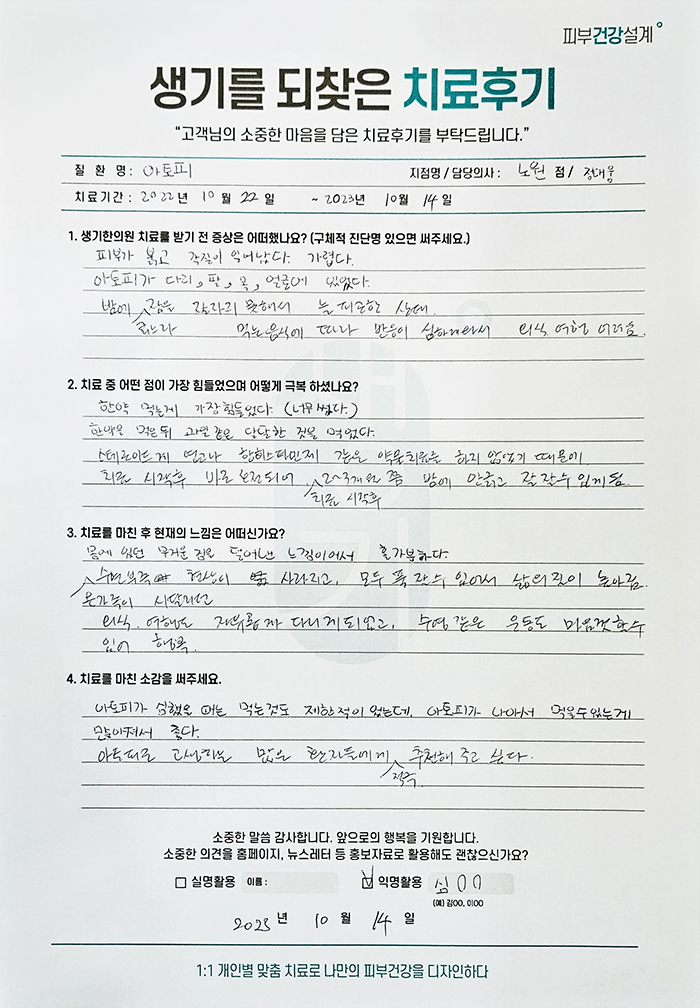 피부건강설계
생기를 되찾은 치료후기
“고객님의 소중한 마음을 담은 치료후기를 부탁드립니다.”
질 환 명 : 아토피 지점명 / 담당의사 : 노원 점 / 정대웅
치료기간 : 2022년 10월 22일 ~ 2023년 10월 14일
1. 생기한의원 치료를 받기 전 증상은 어떠했나요? (구체적 진단명 있으면 써주세요.)
피부가 붉고 각질이 일어났다. 가렵다.
아토피가 다리, 팔, 목, 얼굴에 있었다.
밤에 잠을 잘 자지 못해서 늘 피곤한 상태.
긁느라 먹는 음식에 따라 반응이 심하여 외식, 여행 어려움.
2. 치료 중 어떤 점이 가장 힘들었으며 어떻게 극복 하셨나요?
한약 먹는게 가장 힘들었다. (너무 썼다.)
한약을 먹은 뒤 과일 같은 달달한 것을 먹었다.
스테로이드제 연고나 항히스타민제 같은 약물치료를 하지 않았기 때문에
치료 시작후 바로 호전되어 2~3개월쯤 밤에 안긁고 잘 잘수 있게 됨.
치료 시작후
3. 치료를 마친 후 현재의 느낌은 어떠신가요?
몸에 있던 무거운 짐을 덜어낸 느낌이어서 홀가분하다.
수면부족 현상이 사라지고, 모두 푹 잘 수 있어서 삶의 질이 높아짐.
온가족이 시달리던
외식, 여행도 자유롭게 다니게 되었고, 수영 같은 운동도 마음껏 할수
있어 행복.
4. 치료를 마친 소감을 써주세요.
아토피가 심했을 때는 먹는것도 제한적이었는데, 아토피가 나아서 먹을수있는게
많아져서 좋다.
아토피로 고생하는 많은 환자들에게 추천해 주고 싶다.
적극
소중한 말씀 감사합니다. 앞으로의 행복을 기원합니다.
소중한 의견을 홈페이지, 뉴스레터 등 홍보자료로 활용해도 괜찮으신가요?
실명활용 이름 : 익명활용 심00
(예) 김OO, 이OO
2023년 10월 14일
1:1 개인별 맞춤 치료로 나만의 피부건강을 디자인하다